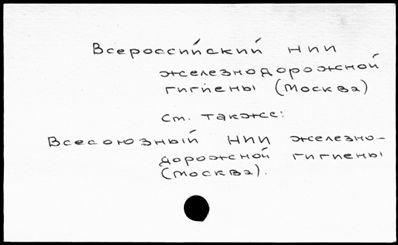 Всероссийский НИИ
железнодорожной
гигиены (Москва)
см. также:
Всесоюзный НИИ железно-
дорожной гигиены
(Москва).